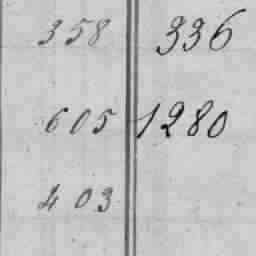 358 336
605 1280
403